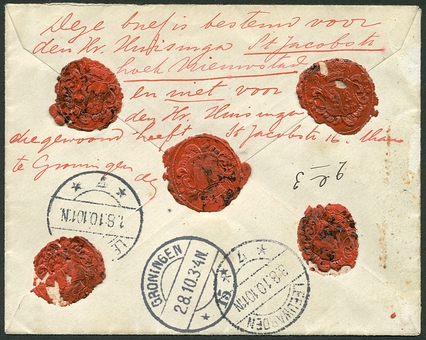 Deze brief is bestemd voor
den Hr. Huisinga St Jacobsts
hoek Nieuwstad
en met voor
den Hr. Huisinga
die gewoond heeft St Jacobsts 16. thans
te Groningen
2 e 3
LE 7 1.8.10.101N.
GRONINGEN 2.8.10.34N. 15
LEEUWARDEN 7 3.8.10.101N.